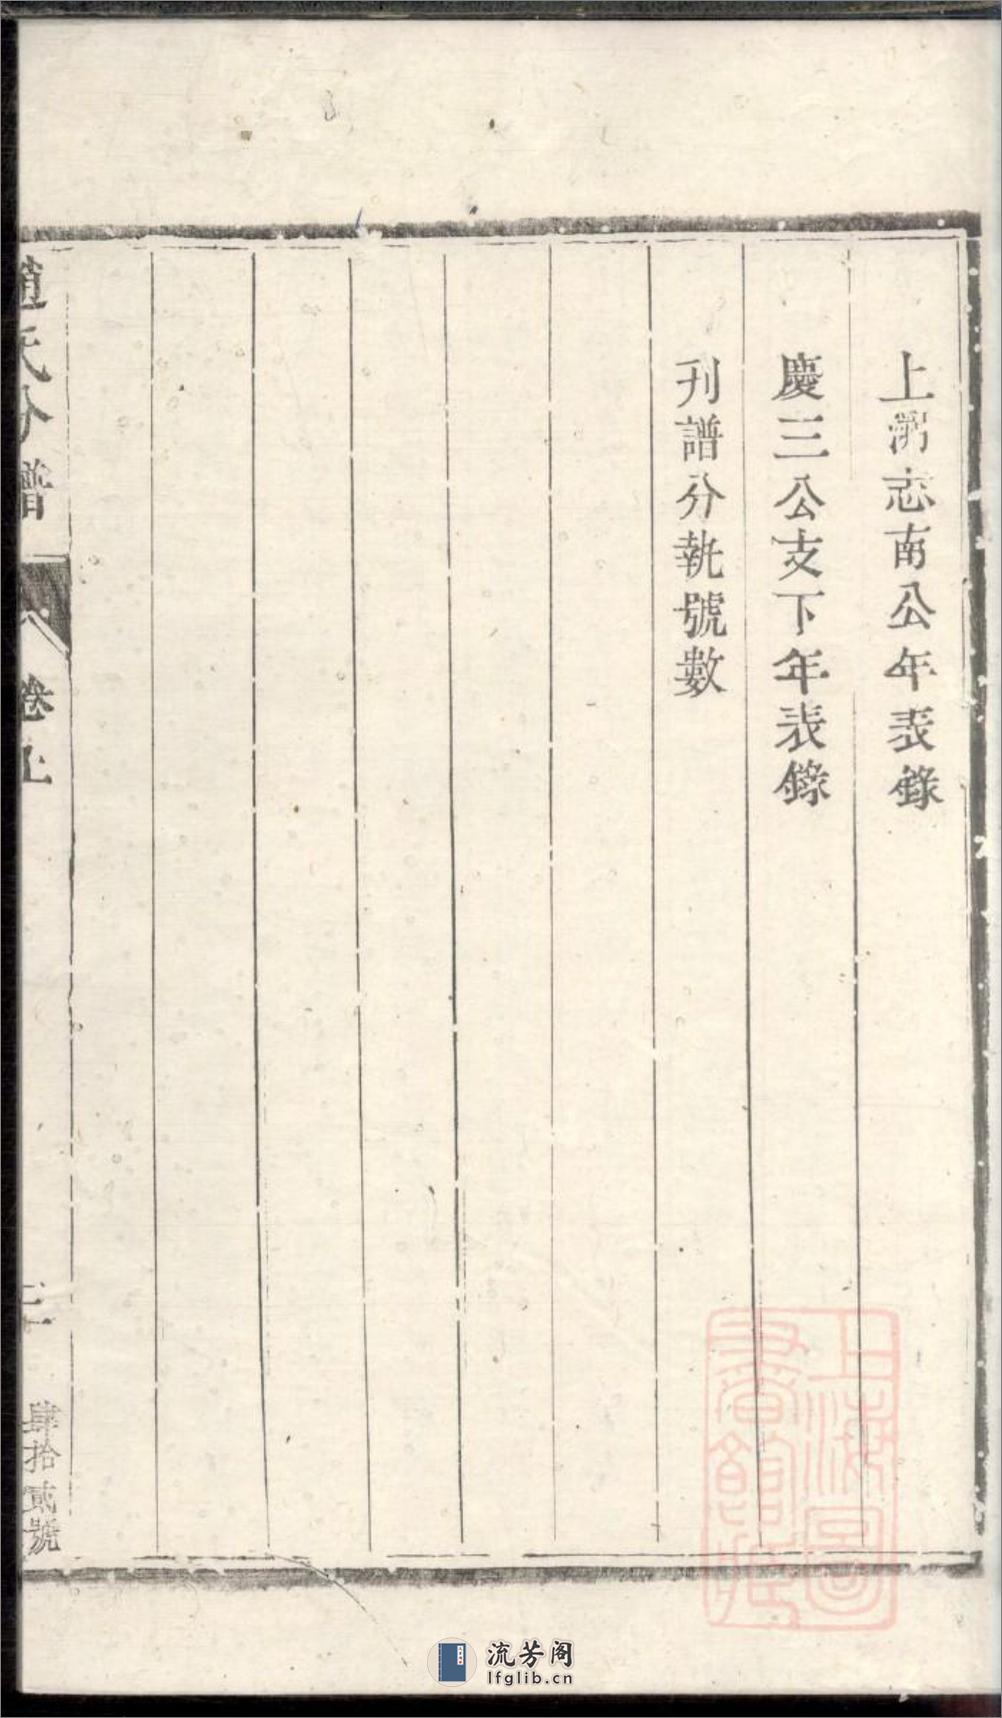 上灣志南公年表錄
慶三公支下年表錄
刊譜分執號數
趙氏分譜
卷上
三
肆拾貳號
上海圖書館藏
流芳阁
lfglib.cn